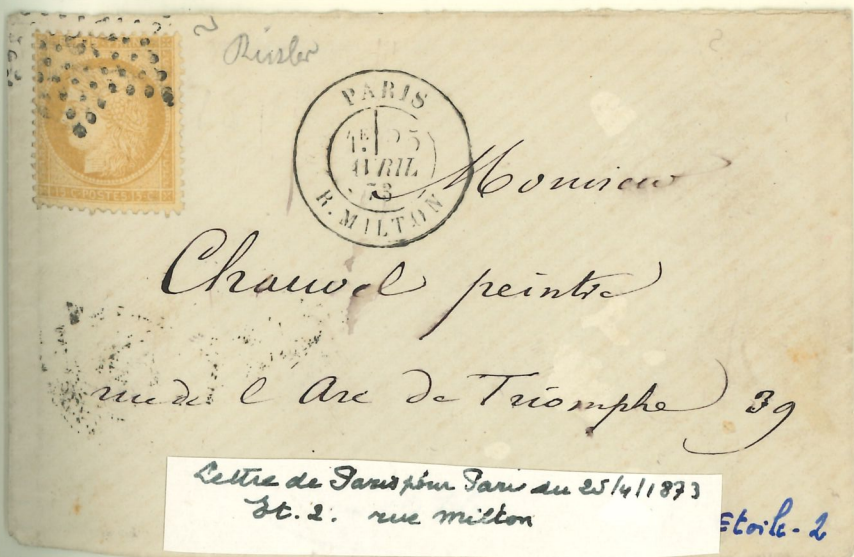 Riesler
PARIS
1E 25
AVRIL
73
R. MILTON
15·C·POSTES·15·C
Monsieur
Chauvel peintre
rue de l Arc de Triomphe 39
Lettre de Paris pour Paris du 25/4/1873
Et. 2. rue Milton
Etoile - 2